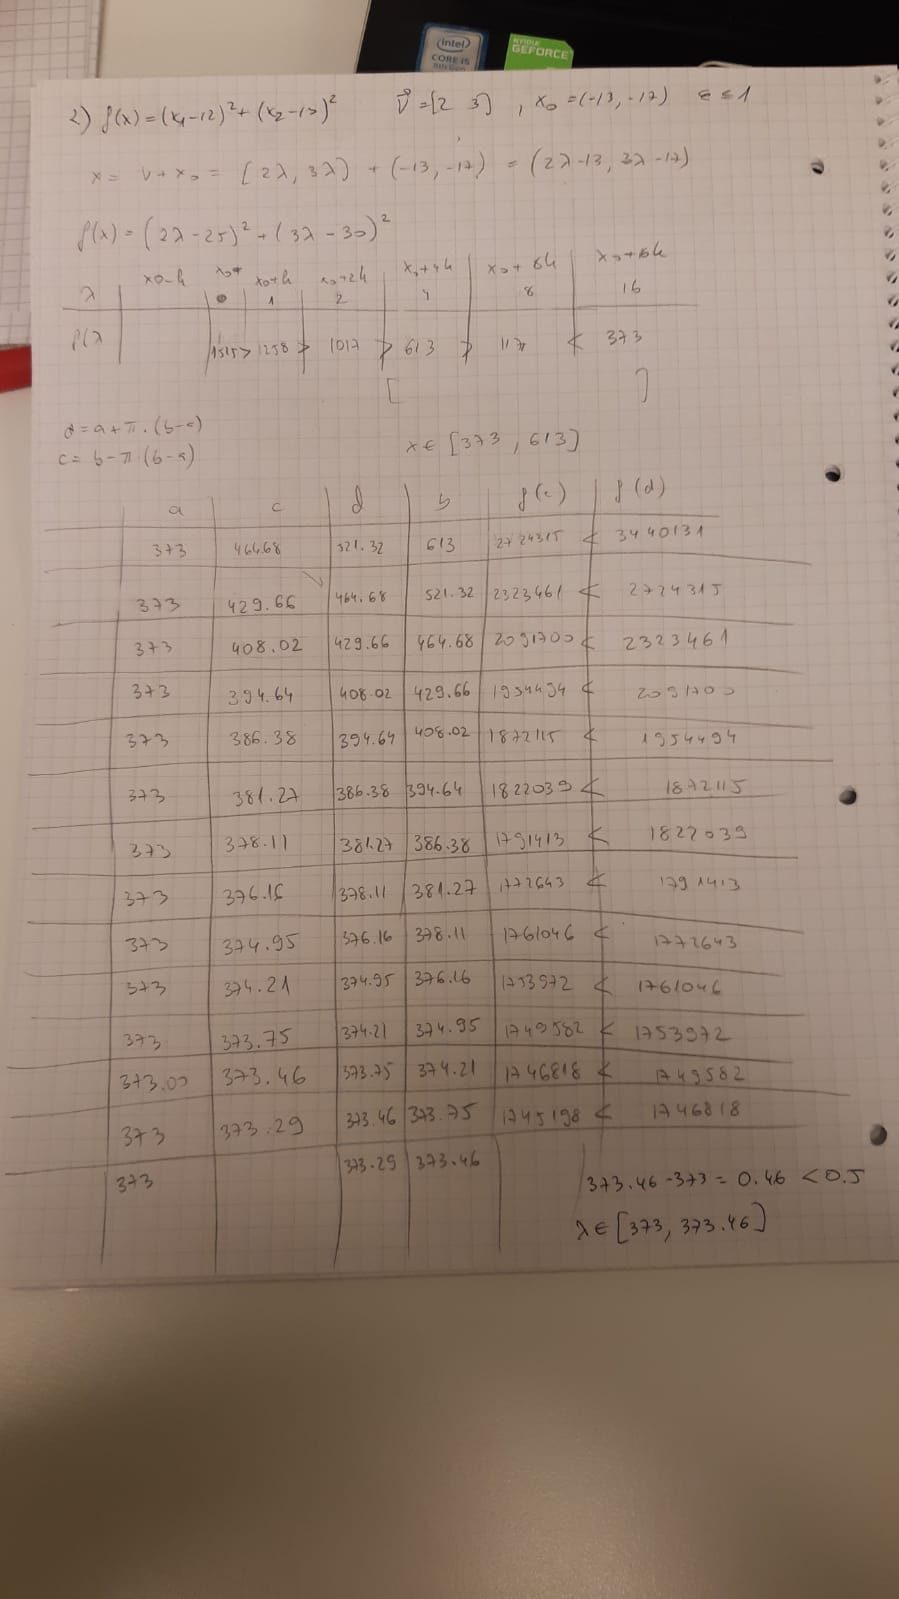 intel
CORE i5
8th Gen
NVIDIA
GEFORCE
2) f(x)=(x₁-12)²+(x₂-13)² v⃗=[2 3] , x₀=(-13,-17) ε≤1
x= v+x₀ = [2λ, 3λ) + (-13,-17) = (2λ-13, 3λ-17)
f(x)=(2λ-25)²+(3λ-30)²
x0-h x₀+ x₀+h x₀+2h x₀+4h x₀+8h x₀+16h
λ 0 1 2 4 8 16
f(λ 1525> 1258 > 1017 > 613 > 117 < 373
[ ]
d=a+π.(b-a)
c= b-π.(b-a) x∈[373, 613]
a c d b f(c) f(d)
373 464.68 521.32 613 2724315 < 3440131
373 429.66 464.68 521.32 2323461 < 2724315
373 408.02 429.66 464.68 2091700 < 2323461
373 394.64 408.02 429.66 1954494 < 2091700
373 386.38 394.64 408.02 1872115 < 1954494
373 381.27 386.38 394.64 1822039 < 1872115
373 378.11 381.27 386.38 1791413 < 1822039
373 376.16 378.11 381.27 1772643 < 1791413
373 374.95 376.16 378.11 1761046 < 1772643
373 374.21 374.95 376.16 1753972 < 1761046
373 373.75 374.21 374.95 1749582 < 1753972
373.00 373.46 373.75 374.21 1746818 < 1749582
373 373.29 373.46 373.75 1745198 < 1746818
373 373.29 373.46
373.46-373= 0.46 <0.5
λ∈[373, 373.46]